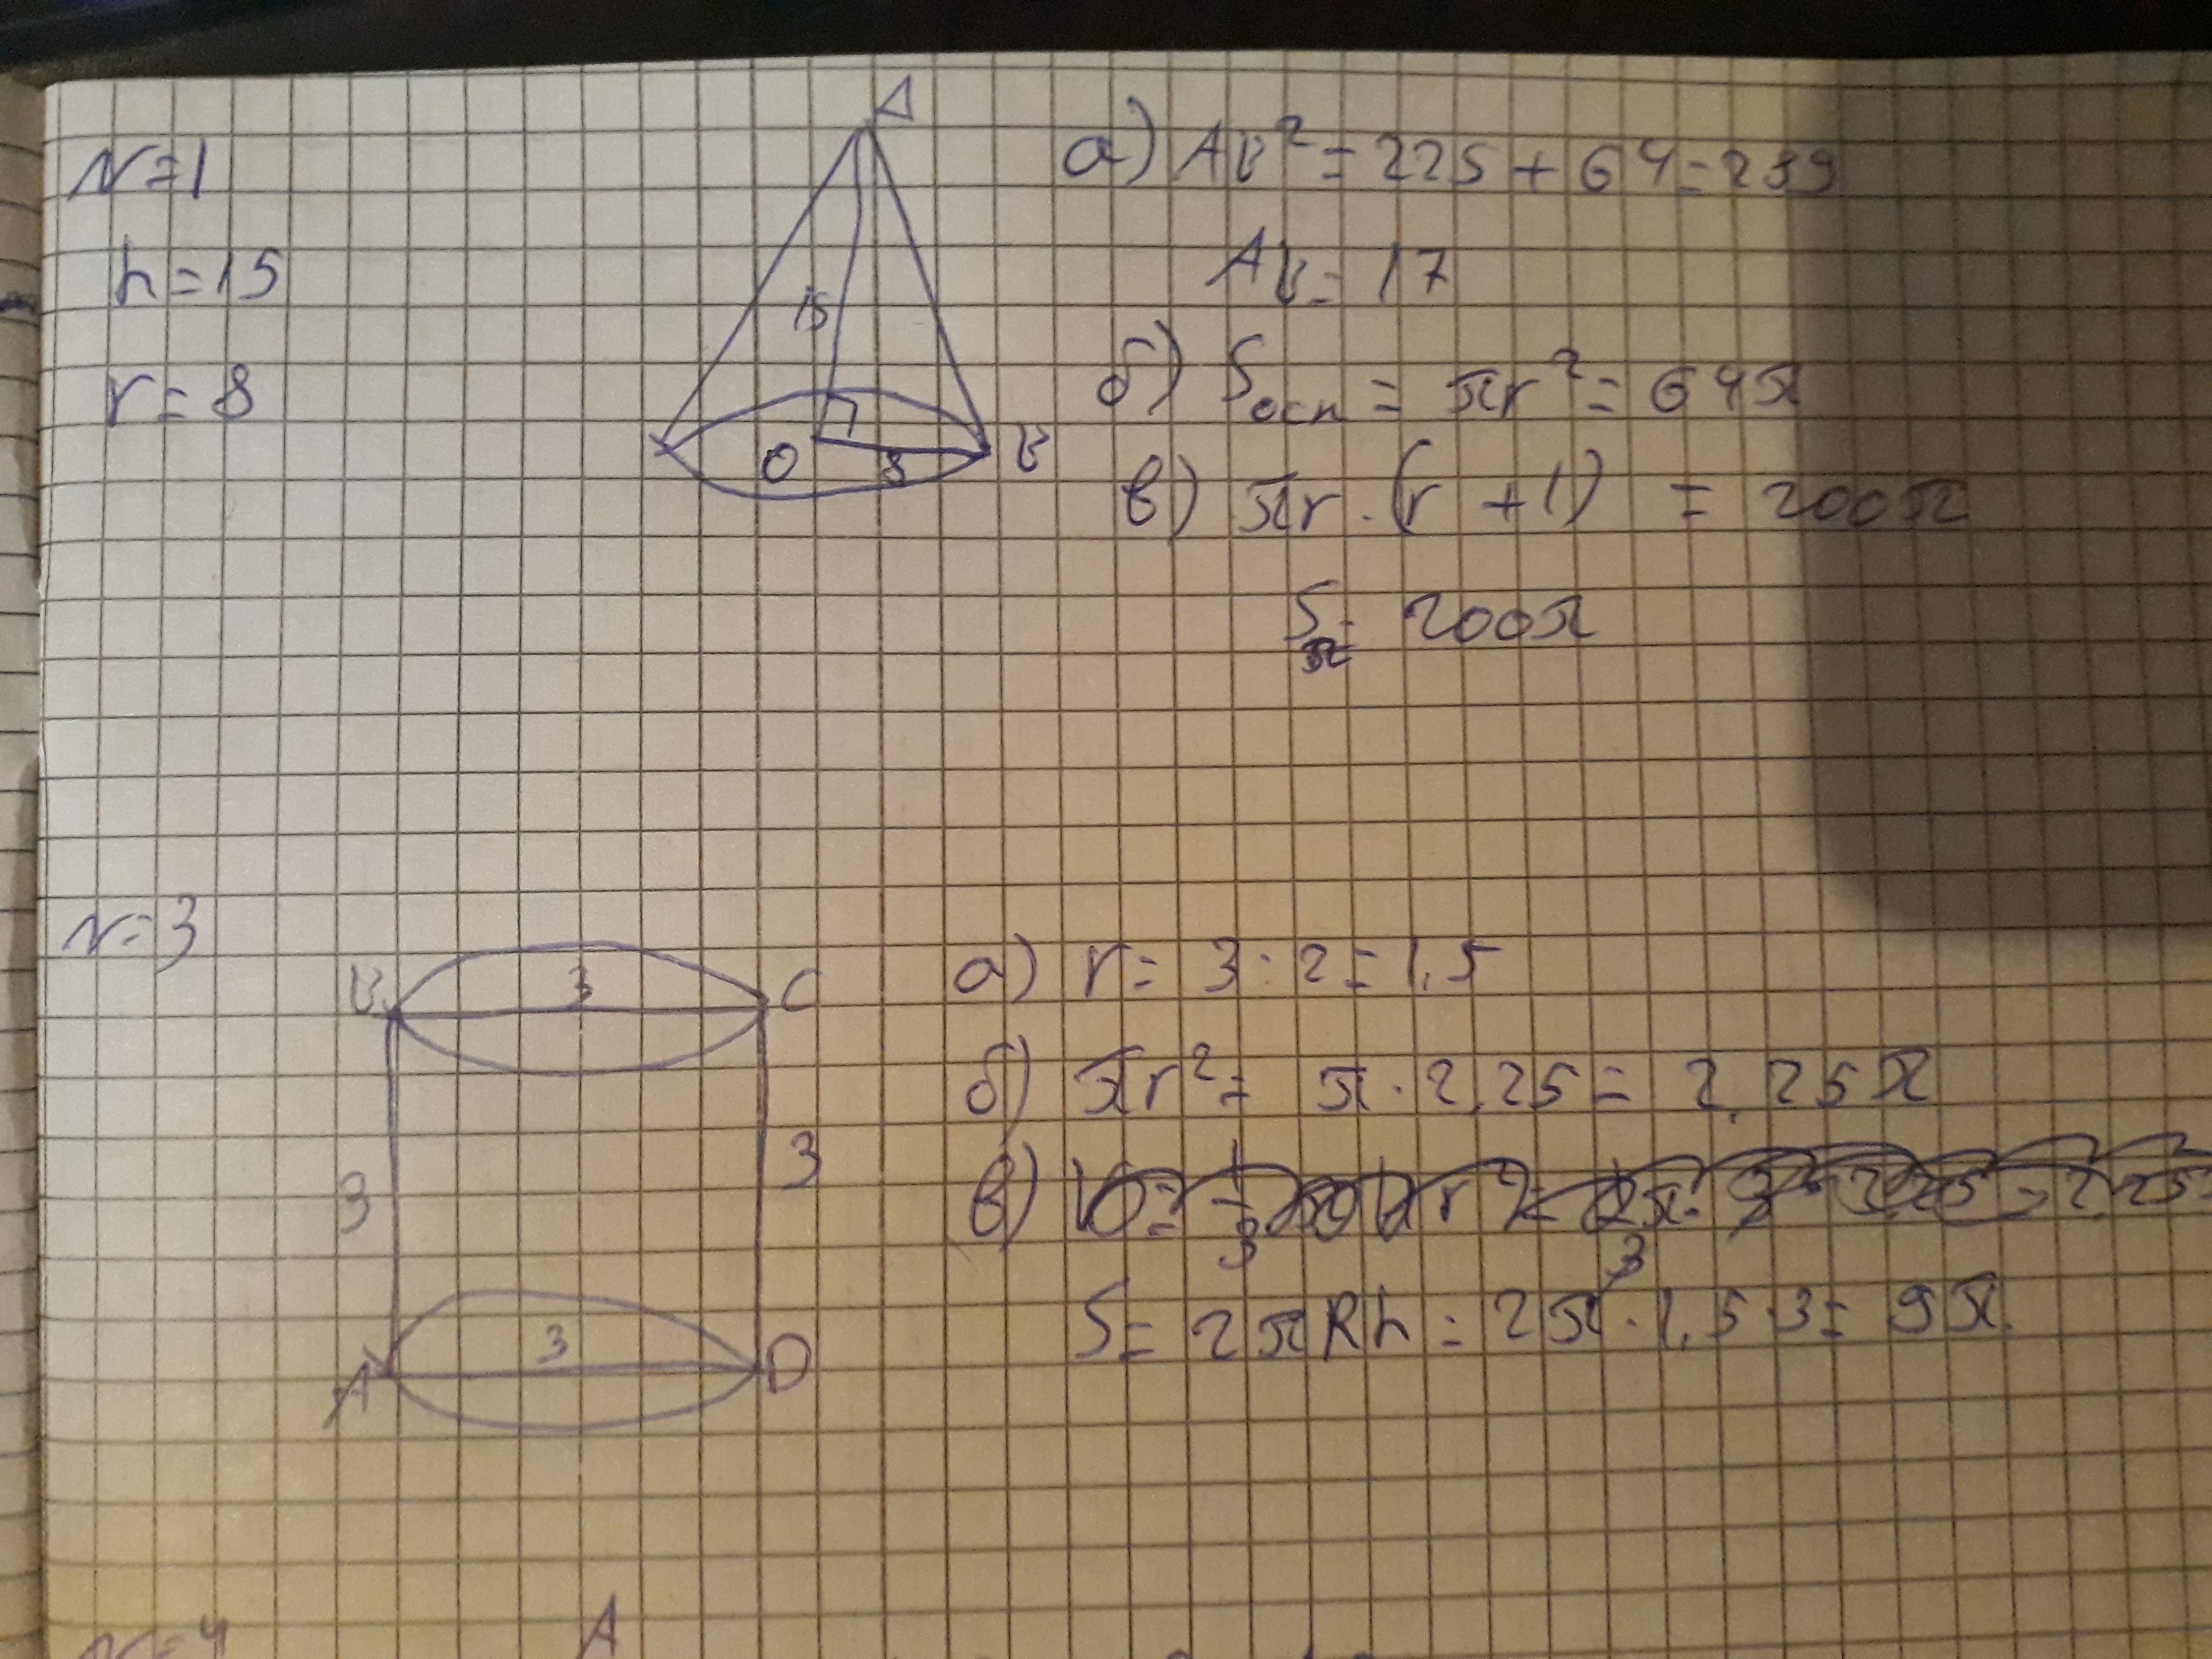 N=1
h=15
r=8
A
15
O
8
B
а) AB² = 225 + 64 = 289
AB = 17
б) Sосн = πr² = 64π
в) πr · (r + l) = 200π
S = 200π
N=3
B
3
C
3
3
A
3
D
а) r = 3 : 2 = 1,5
б) πr² = π · 2,25 = 2,25π
в)
S = 2πRh = 2π · 1,5 · 3 = 9π
N=4
A